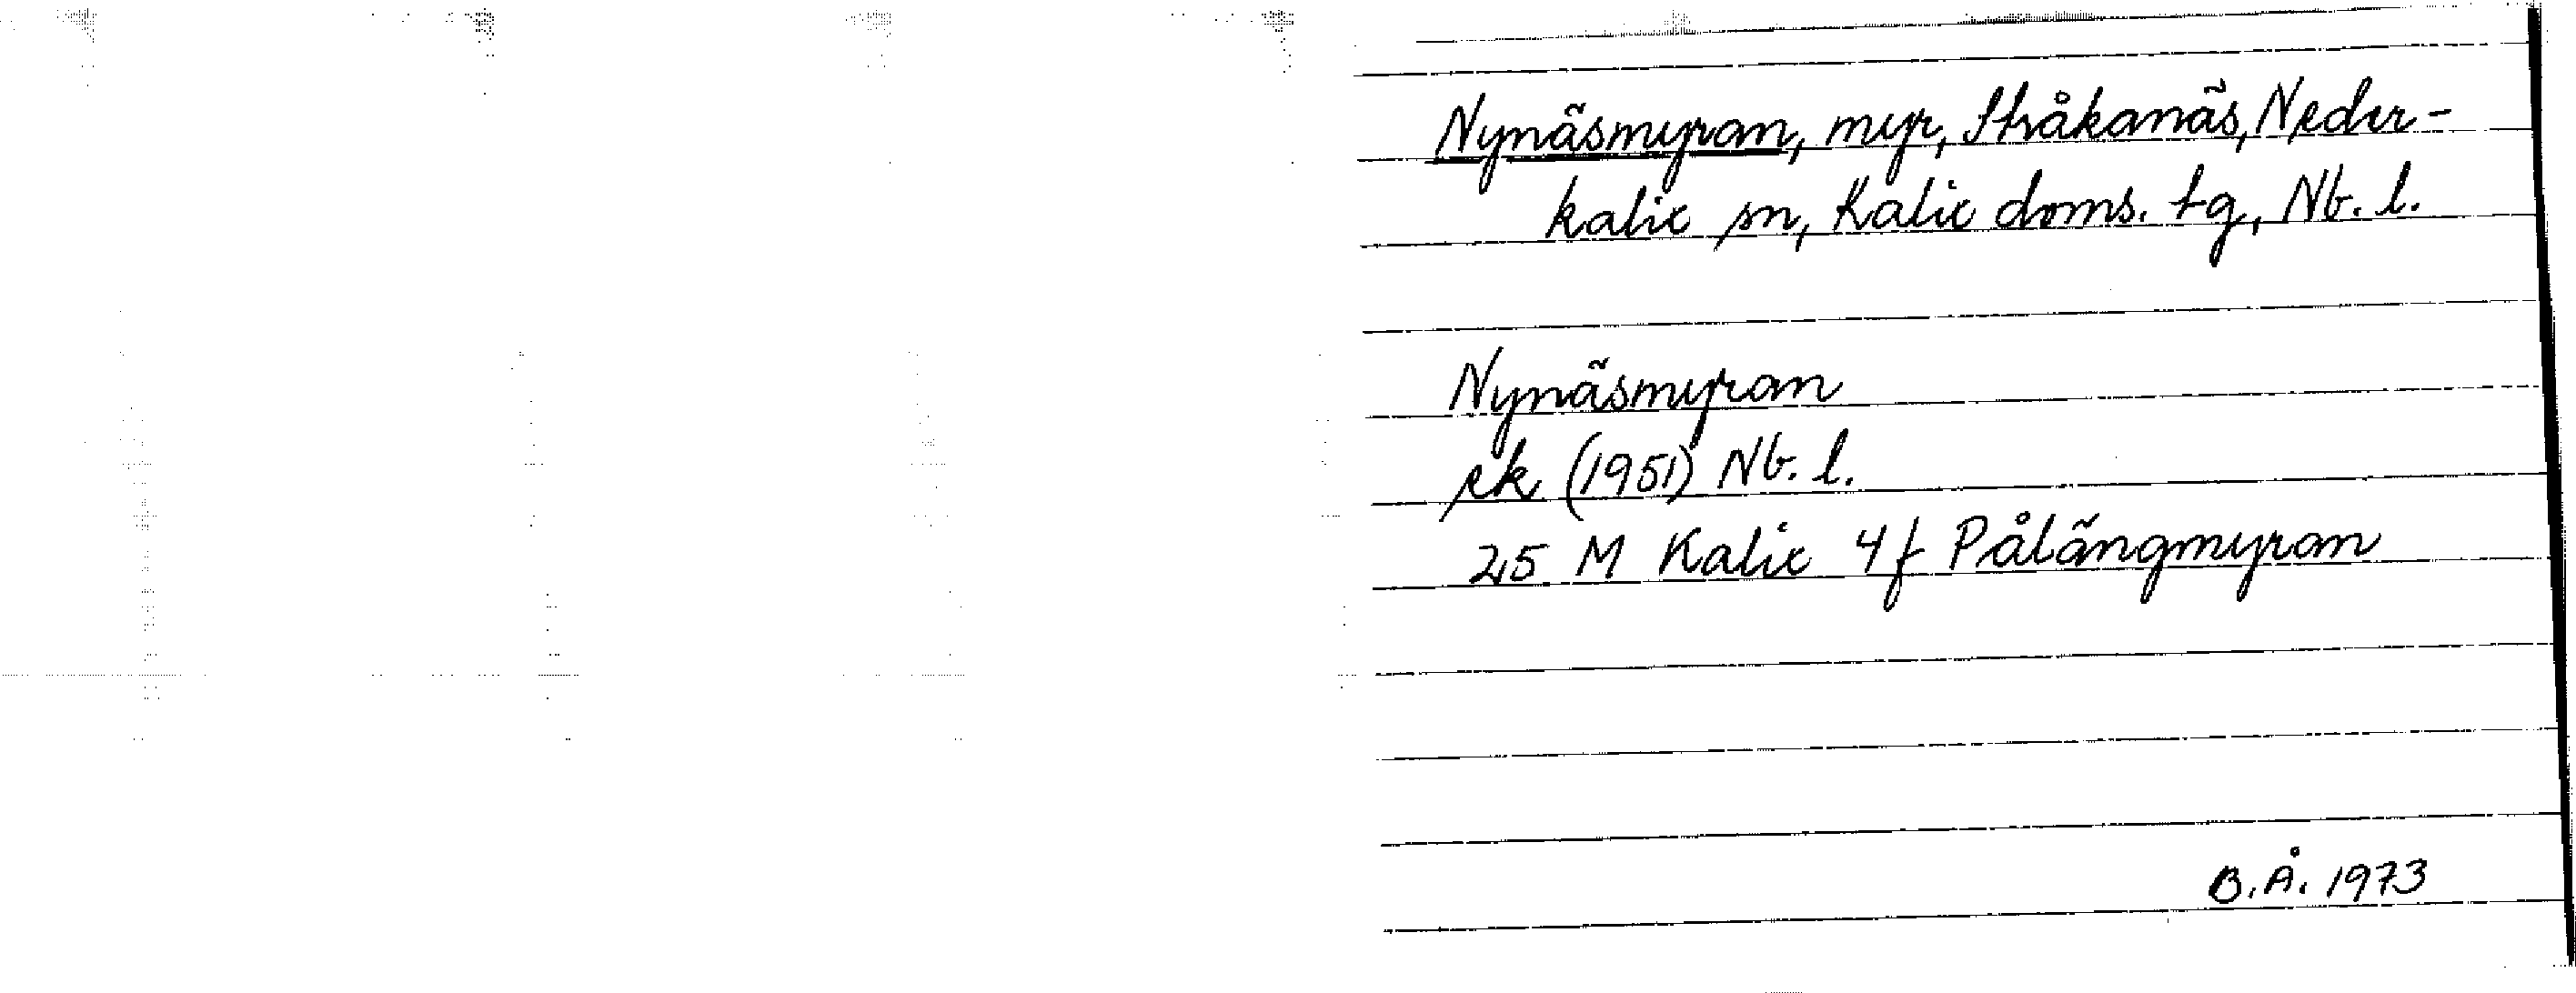 Nynäsmyran, myr, Stråkanäs, Neder-
kalix sn, Kalix doms. tg, Nb. l.
Nynäsmyran
ek (1951) Nb. l.
25 M Kalix 4f Pålängmyran
B.Å. 1973